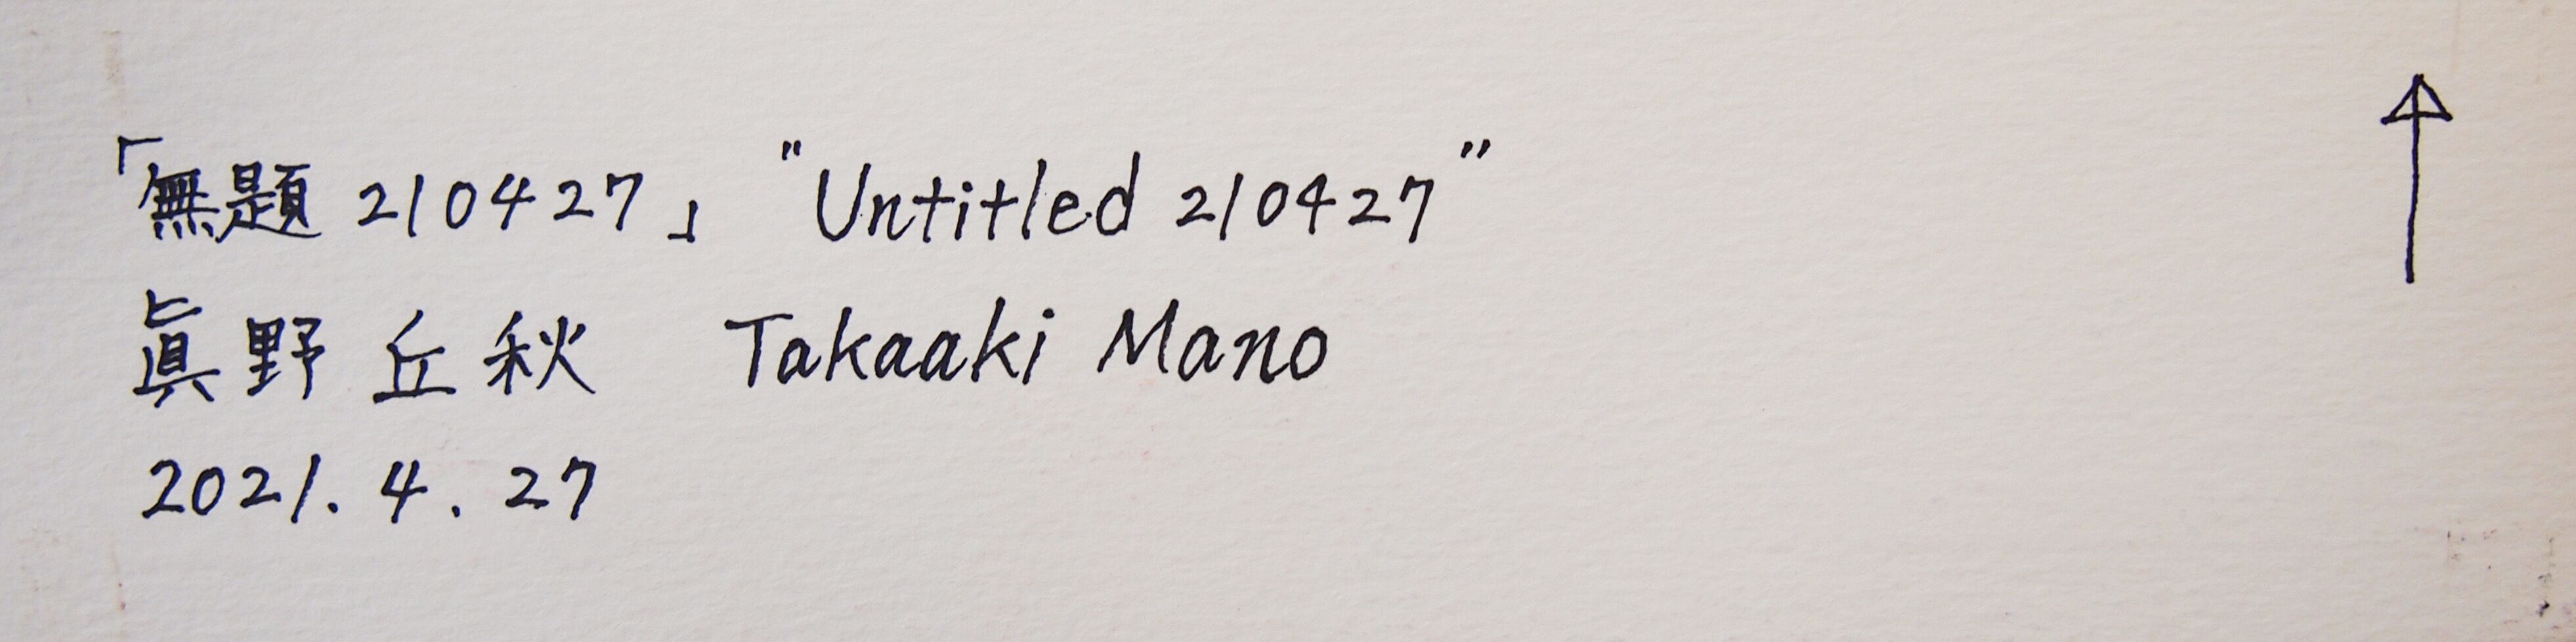 「無題 210427」 "Untitled 210427"
眞野丘秋 Takaaki Mano
2021. 4. 27